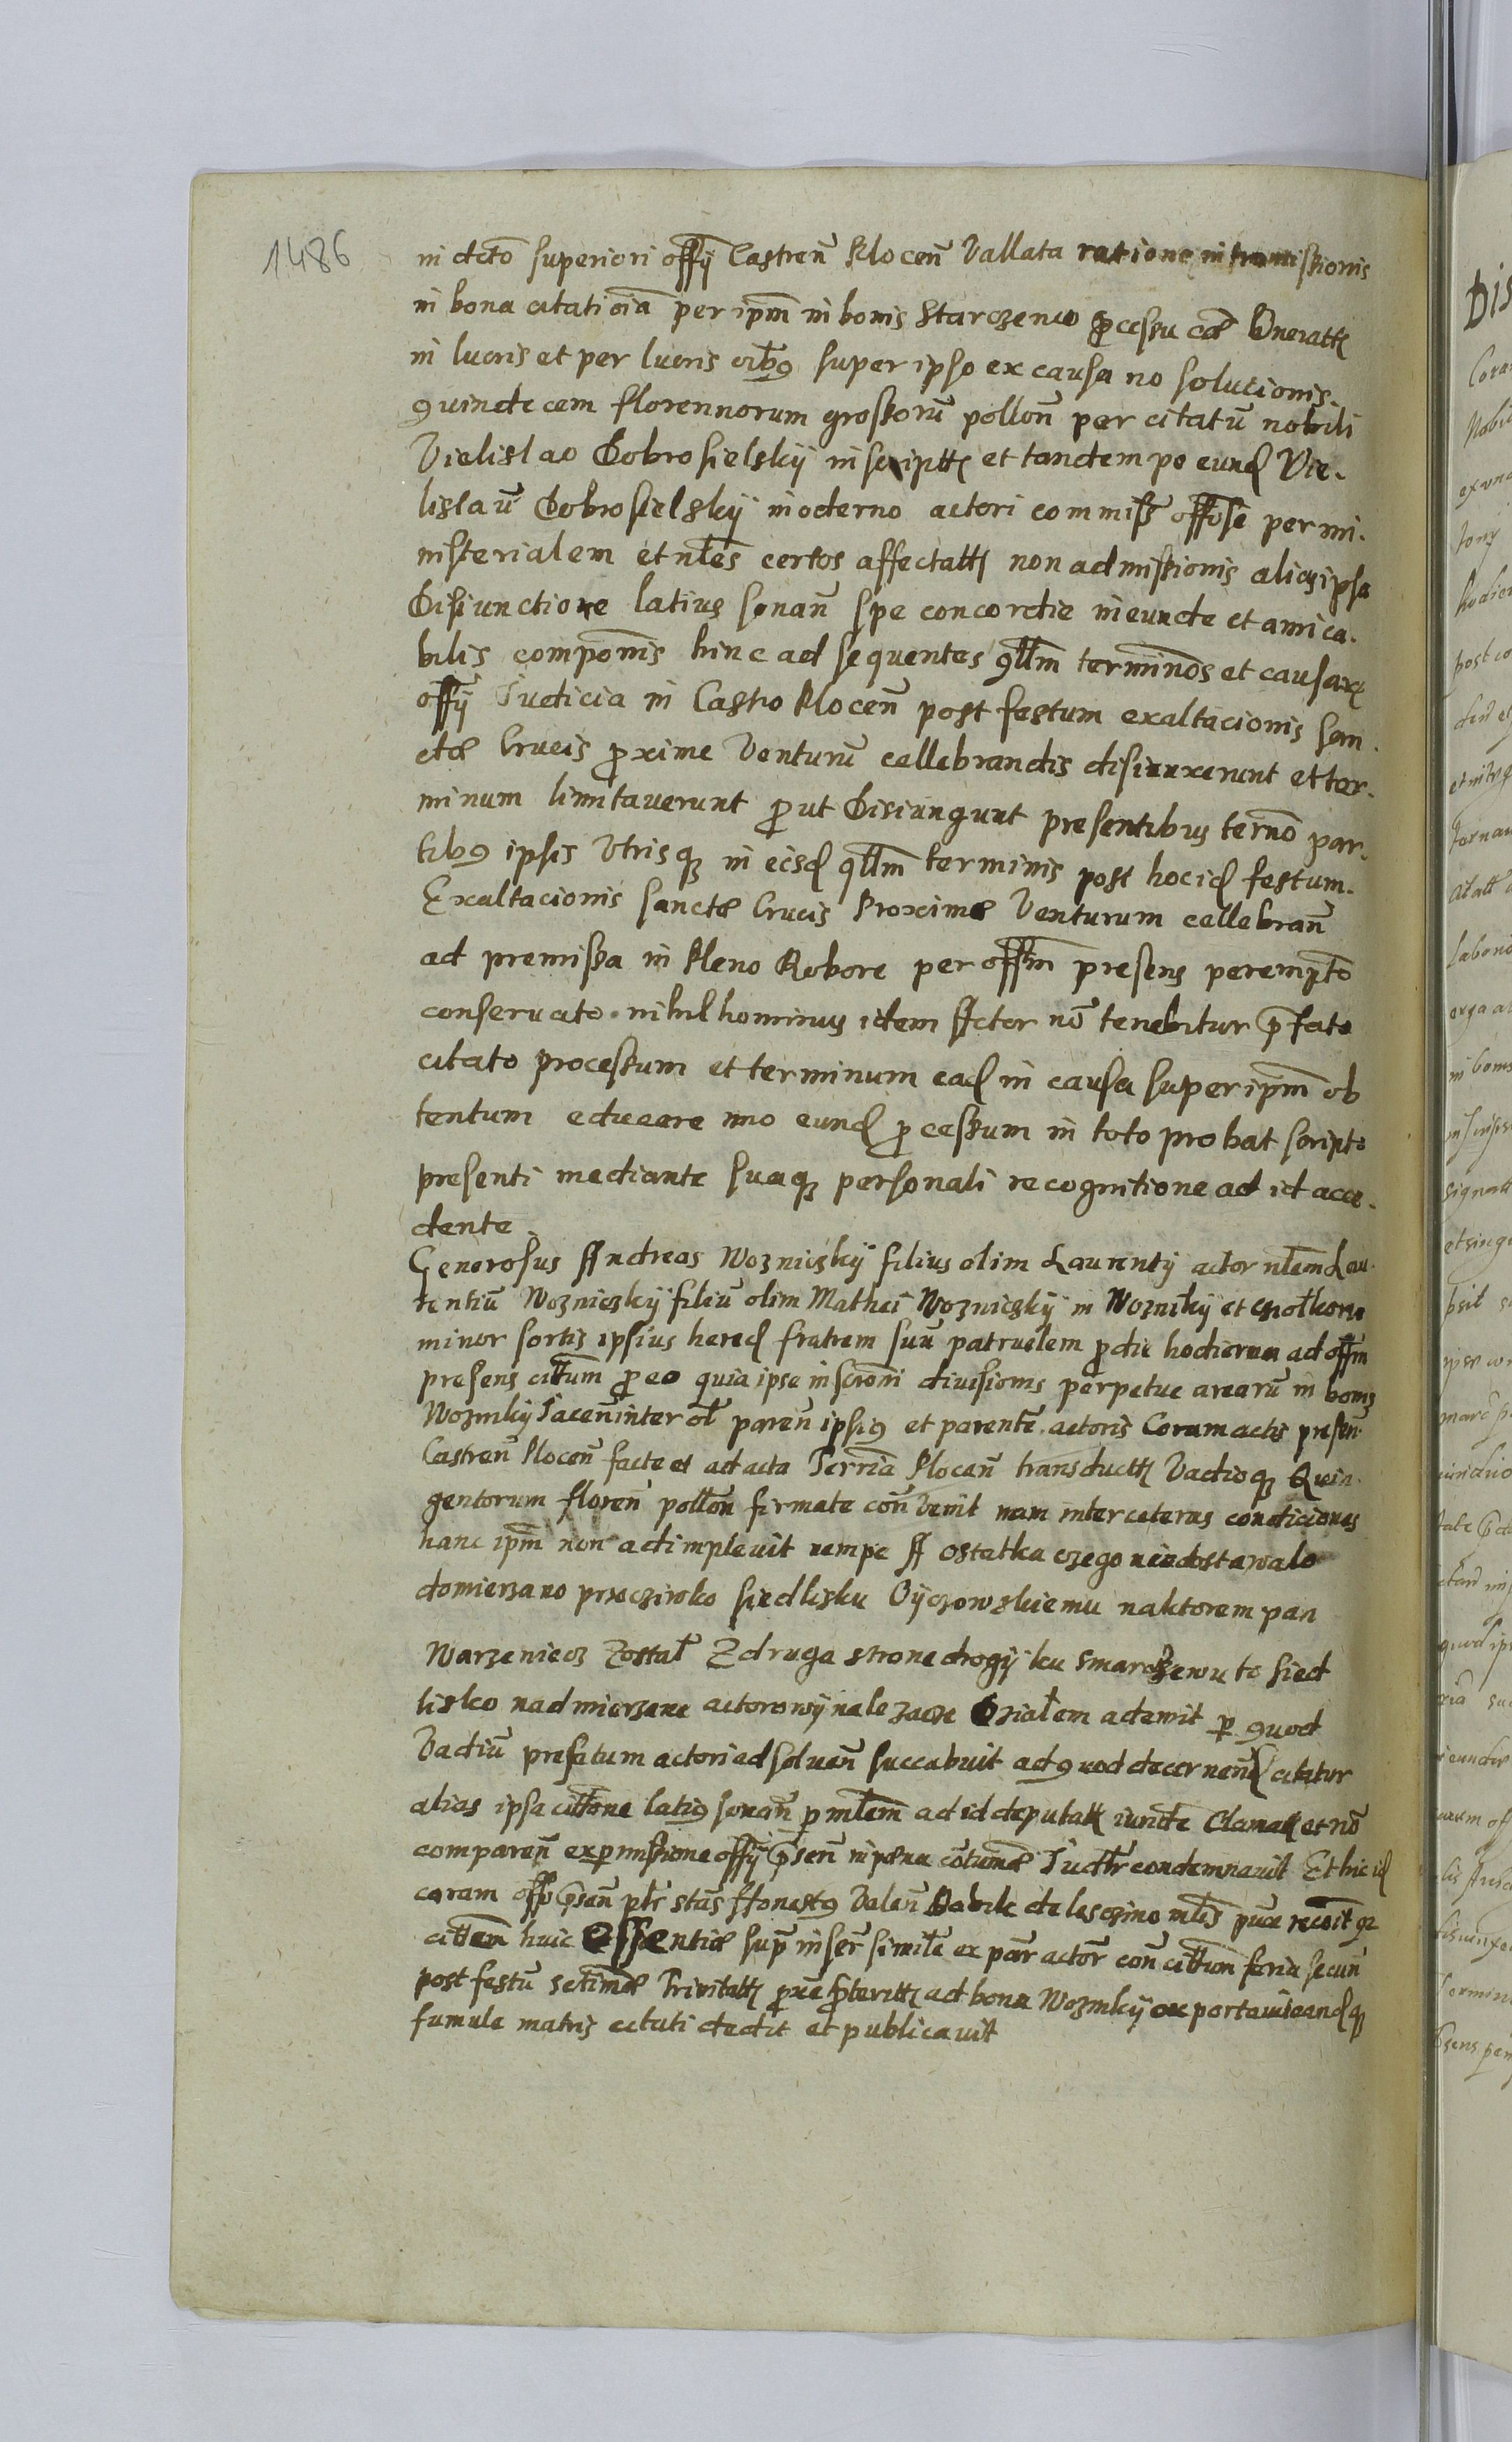 1486
in dcto superiori offÿ Castren Plocen Vallata ratione intromissionis
in bona citati oia per ipm in bonis Starozenio processu cd Oneratt
in lucris et per lucris oibus super ipso ex causa no solucionis.
quindecem florennorum grossoru pollon per citatu nobili
Vielislao Dobrosielskÿ inscriptt et tandem po eund Vie-
lislau Dobrosielskÿ moderno actori commiss offose per mi-
nisterialem et nles certos affectatt non admissionis alias ipsa
Disiunctione latius sonan spe concordie ineunde et amica-
bilis componis hinc ad sequentes qllm terminos et causarum
offÿ Judicia in Castro Plocen post festum exaltacionis San-
cte Crucis proxime Venturu cellebrandis disiunxerunt et ter-
minum limitaverunt prout Disiungunt presentibus terno par-
tibus ipsis Utrisque in eisd qllm terminis post hocid festum
Exaltacionis sancte Crucis Proxime Venturum cellebran
ad premissa in Pleno Robore per offm presens perempto
conservato. nihilhominus idem Actor no tenebitur prefato
citato processum et terminum ead in causa super ipm ob
tentum educere imo eund processum in toto probat scripto
presenti mediante suaque personali recognitione ad id acce-
dente.
Generosus Andreas Wozniczkÿ filius olim Laurentÿ actor nlem Lau-
rentiu Wozniczkÿ filiu olim Mathei Wozniczkÿ in Woznikÿ et
minor sortis ipsius hered fratrem suu patruelem pro die hodierna ad offm
presens cittum pro eo quia ipse inscroni divisionis perpetue arearu in bonis
Woznikÿ Jacen inter ol paren ipsius et parente actoris Coram actis presen
Castren Plocen facte et ad acta Terria Plocen transductt Vadioque Quin-
gentorum floren pollon firmate con Venit nam inter ceteras condiciones
hanc ipm non adimplevit nempe A ostatka czego niedostawalo
domierzano przeczirko siedlisku Oÿczowskiemu naktorem pan
Warzeniecz Zostal Z druga strone drogÿ ku Smardzewu to sied
lisko nadmierzane actorowÿ nalezacze Dzialem ademit per quod
Vadiu prefatum actori ad solven succubuit ad quod decernend citatur
alias ipsa cittone latius sonan per mlem ad id deputatt iuridte Clamatt et no
comparen ex permissione offÿ presen in pena cotumac Judtr condemnavit Et hic id
coram offo presen ptr stans Honestus Valen Babik de leszino mlis puce recoit qr
cittem huic Essentie supra inser simile ex par actor con cittum feria secun
post festu sctime Trinitatt proxe preteritt ad bona Woznikÿ exportavit eandque
famule matris citati dedit et publicavit